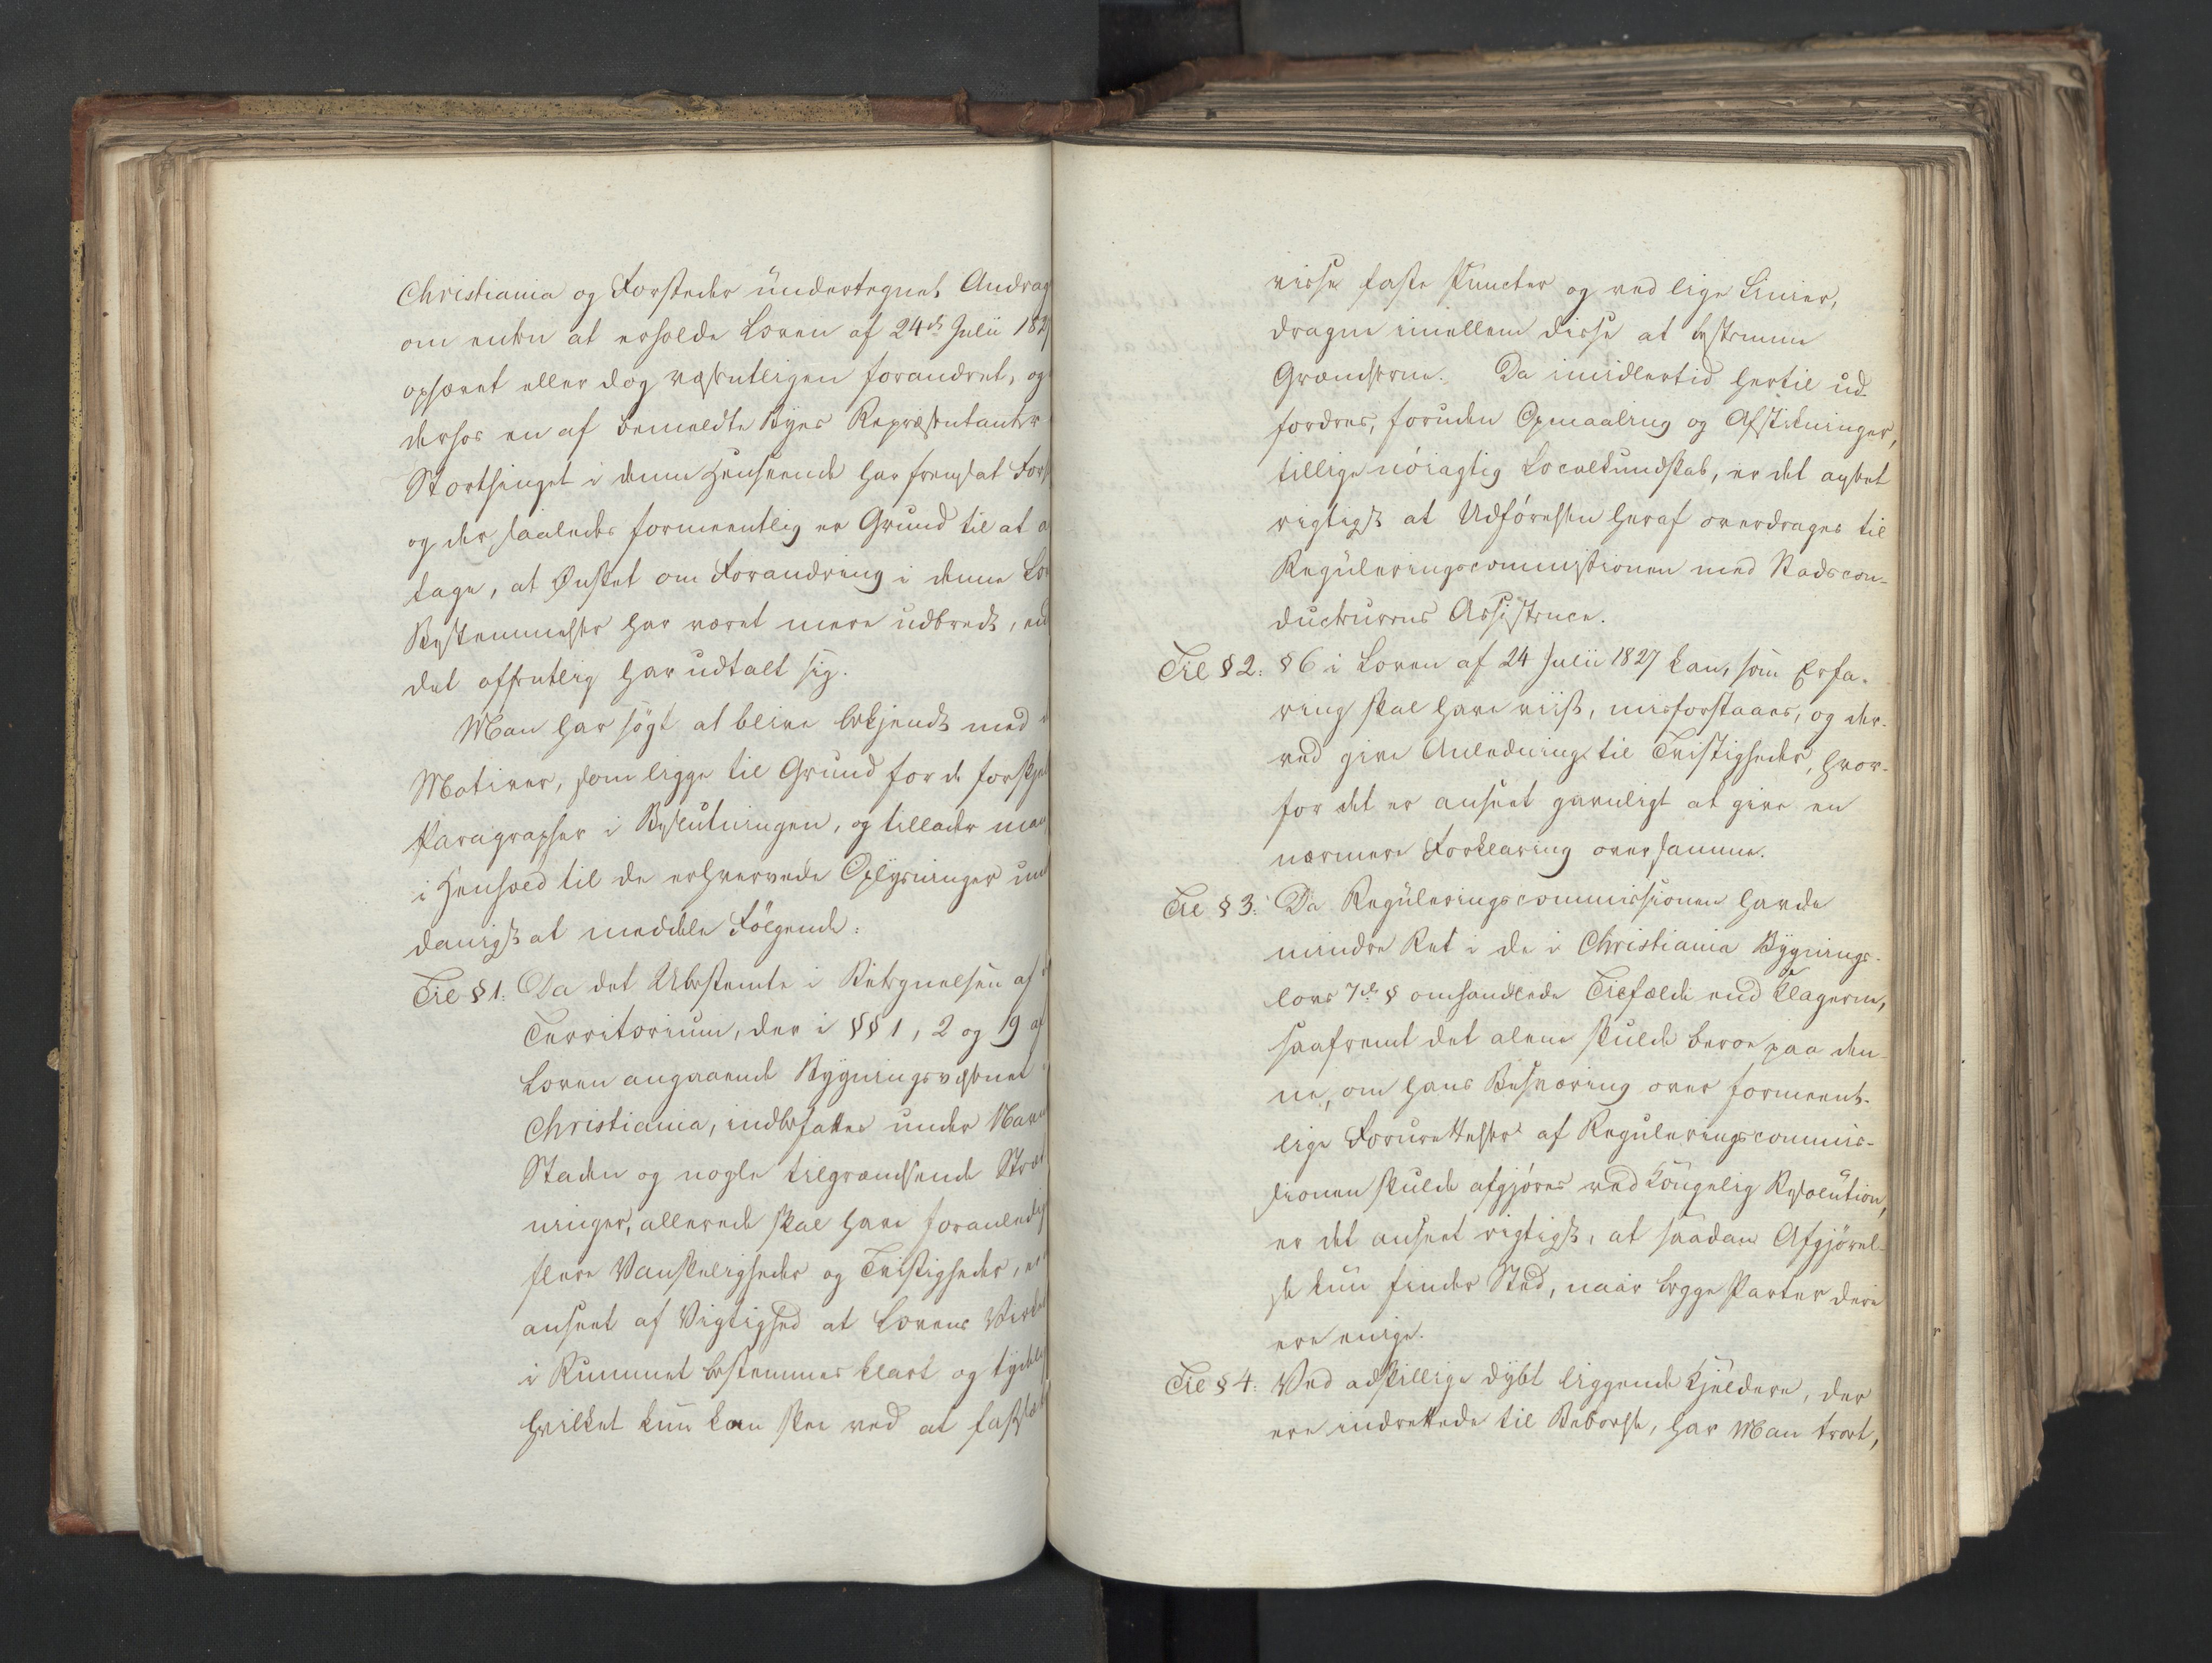 Christiania og Forstæder undertegnet Andrag
om enten at erholde Loven af 24de Julii 182
ophævet eller dog væsentligen forandret, og
derhos en af bemeldte Byes Repræsentanter
Storthinget i denne Henseende har fremsat For
og der saaledes formeentlig er Grund til at a
tage, at Ønsket om Forandring i denne Lov
Bestemmelser har været mere udbredt, end
det offentlig har udtalt sig.
Man har søgt at blive bekjendt med
Motiver, som ligge til Grund for de forskjel
Paragrapher i Beslutningen, og tillader man
i Henhold til de erhvervede Oplysninger und
danigst at meddele Følgende:
Til § 1. Da det Ubestemte i Betegnelsen af
Territorium, der i §§ 1, 2 og 19 af
Loven angaaende Bygningsvæsenet
Christiania, indbefattes under Navn
Staden og nogle tilgrændsende Stræk
ninger, allerede skal have foranledig
flere Vanskeligheder og Tvistigheder, er
anseet af Vigtighed at Lovens Virke
i Rummet bestemmes klart og tydeli
hvilket kun kan skee ved at fastsæt
visse faste Puncter og ved lige Linier,
dragne imellem disse at bestemme
Grændserne. Da imidlertid hertil ud-
fordres, foruden Opmaaling og Afstikninger,
tillige nøiagtig Localkundskab, er det agtet
rigtigst at Udførelsen heraf overdrages til
Reguleringscommissionen med Stadscon-
ducteurens Assistence.
Til § 2: § 6 i Loven af 24 Julii 1827 kan, som Erfa-
ring skal have viist, misforstaaes, og der-
ved give Anledning til Tvistigheder, hvor-
for det er anseet gavnligt at give en
nærmere Forklaring over samme.
Til § 3: Da Reguleringscommissionen havde
mindre Ret i de i Christiania Bygnings-
lovs 7de § omhandlede Tilfælde end Klagerne,
saafremt det alene skulde beroe paa den-
ne, om hans Besværing over formeent-
lige Forurettelser af Reguleringscommis-
sionen skulde afgjøres ved Kongelig Resolution,
er det anseet rigtigst, at saadan Afgjørel-
se kun finder Sted, naar begge Parter deri
ere enige.
Til § 4: Ved adskillige dybt liggende Kjeldere, der
ere indrettede til Beboelse, har Man troet,